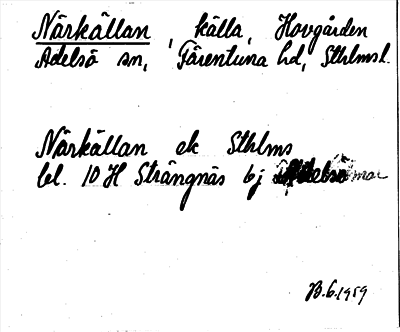 Närkällan, källa, Hovgården
Adelsö sn, Färentuna hd, Sthlms l.
Närkällan ek Sthlms
bl. 10 H Strängnäs 6j
B. 6. 1959